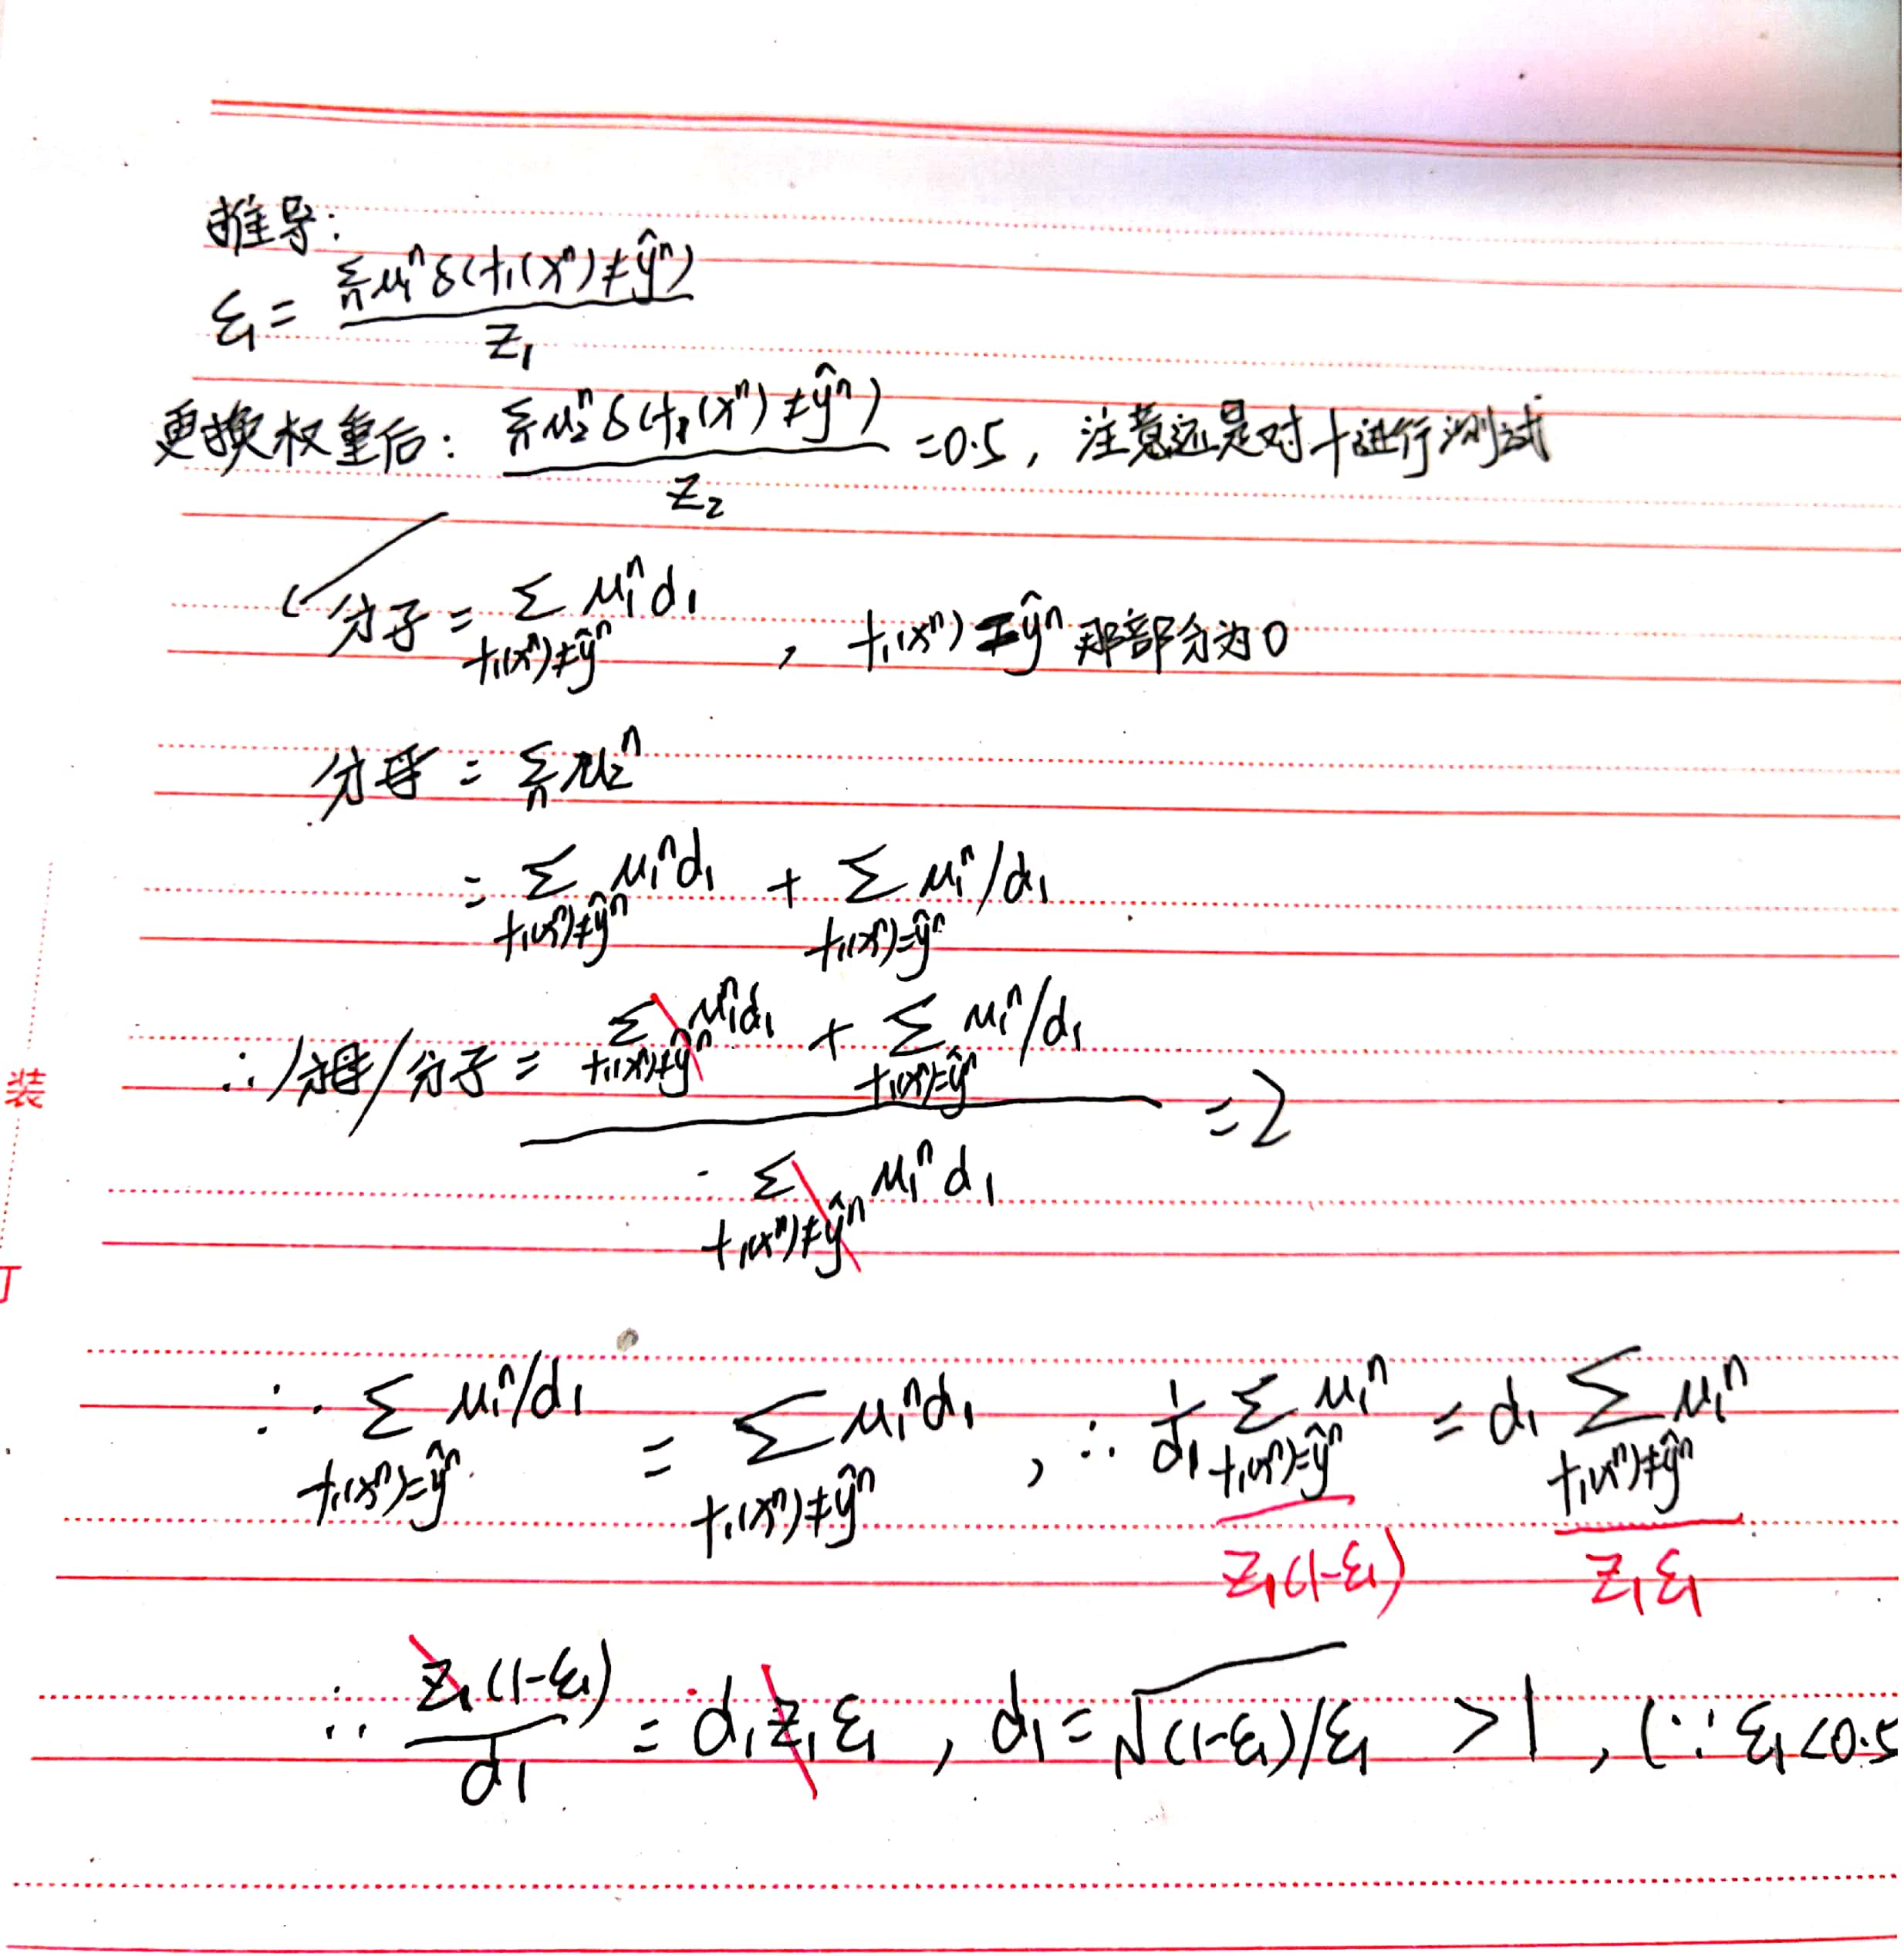 推导:
ε₁ = Σₙ μ₁ⁿ δ(f₁(xⁿ) ≠ ŷⁿ) / Z₁
更换权重后: Σₙ μ₂ⁿ δ(f₁(xⁿ) ≠ ŷⁿ) / Z₂ = 0.5, 注意还是对f进行测试
分子 = Σ_{f₁(xⁿ)≠ŷⁿ} μ₁ⁿ d₁ , f₁(xⁿ) = ŷⁿ 那部分为0
分母 = Σₙ μ₂ⁿ
= Σ_{f₁(xⁿ)≠ŷⁿ} μ₁ⁿ d₁ + Σ_{f₁(xⁿ)=ŷⁿ} μ₁ⁿ/d₁
∴ 分母/分子 = (Σ_{f₁(xⁿ)≠ŷⁿ} μ₁ⁿ d₁ + Σ_{f₁(xⁿ)=ŷⁿ} μ₁ⁿ/d₁) / (Σ_{f₁(xⁿ)≠ŷⁿ} μ₁ⁿ d₁) = 2
装
订
∴ Σ_{f₁(xⁿ)=ŷⁿ} μ₁ⁿ/d₁ = Σ_{f₁(xⁿ)≠ŷⁿ} μ₁ⁿ d₁ , ∴ 1/d₁ Σ_{f₁(xⁿ)=ŷⁿ} μ₁ⁿ = d₁ Σ_{f₁(xⁿ)≠ŷⁿ} μ₁ⁿ
Z₁(1-ε₁) Z₁ε₁
∴ Z₁(1-ε₁)/d₁ = d₁Z₁ε₁ , d₁ = √(1-ε₁)/ε₁ > 1 , (∵ ε₁<0.5